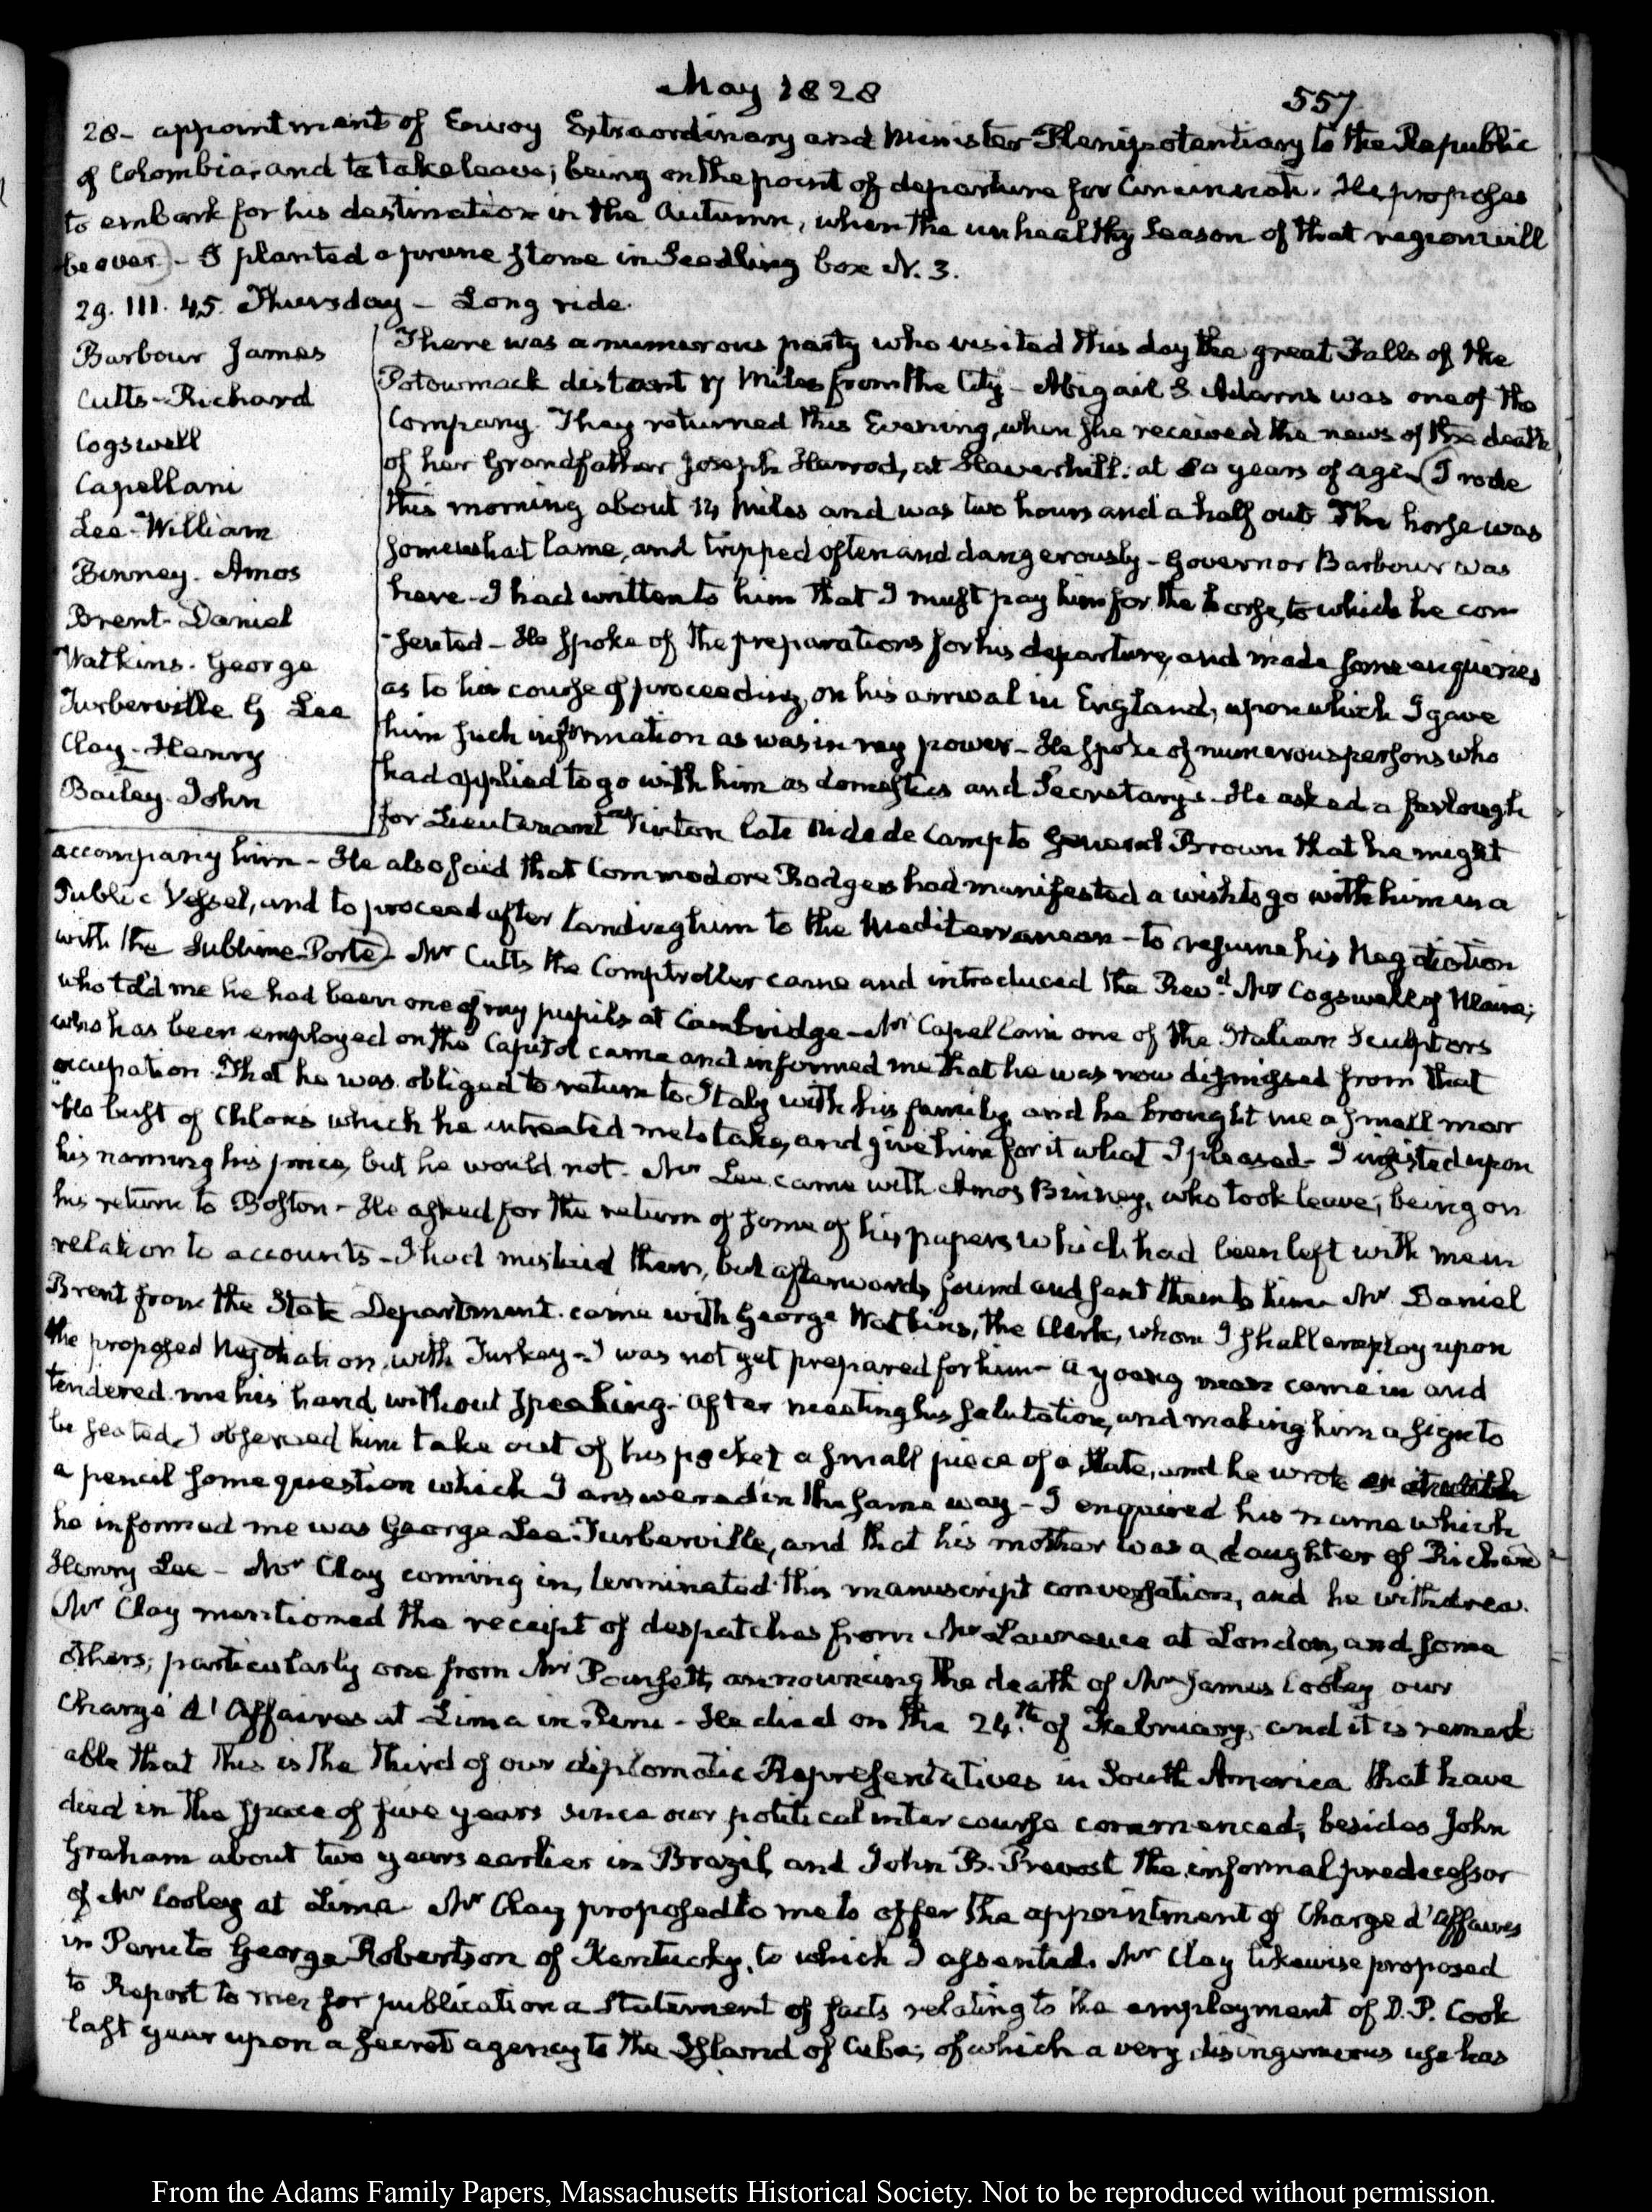 May 1828
557
28- appointment of Envoy Extraordinary and Minister Plenipotentiary to the Republic
of Colombia, and to take leave; being on the point of departure for Cincinnati. He proposes
to embark for his destination in the Autumn, when the unhealthy Season of that region will
be over.) - I planted a prune stone in Seedling box N. 3.
29. III. 45. Thursday - Long ride.
Barbour James
Cutts-Richard
Cogswell
Capellani
Lee-William
Binney. Amos
Brent-Daniel
Watkins. George
Turberville G Lee
Clay-Henry
Bailey-John
There was a numerous party who visited this day the great Falls of the
Potowmack distant 17 Miles from the City - Abigail S. Adams was one of the
Company. They returned this Evening, when she received the news of the death
of her Grandfather Joseph Harrod, at Haverhill: at 80 years of age - (I rode
this morning about 14 Miles and was two hours and a half out. The horse was
somewhat lame, and tripped often and dangerously - Governor Barbour was
here - I had written to him that I must pay him for the horse, to which he con
-sented - He spoke of the preparations for his departure, and made some enquiries
as to his course of proceeding, on his arrival in England, upon which I gave
him such information as was in my power - He spoke of numerous persons who
had applied to go with him as domestics and Secretarys - He asked a furlough
for Lieutenant Vinton late Aid de Camp to General Brown that he might
accompany him - He also said that Commodore Rodgers had manifested a wish to go with him in a
Public Vessel, and to proceed after landing him to the Mediterranean - to resume his Negotiation
with the Sublime Porte) - Mr Cutts the Comptroller came and introduced the Revd. Mr Cogswell of Maine;
who told me he had been one of my pupils at Cambridge - Mr Capellani one of the Italian Sculptors
who has been employed on the Capitol came and informed me that he was now dismissed from that
occupation. That he was obliged to return to Italy with his family, and he brought me a small mar
-ble bust of Chloris which he intreated me to take, and give him for it what I pleased - I insisted upon
his naming his price, but he would not. Mr Lee came with Amos Binney, who took leave; being on
his return to Boston - He asked for the return of some of his papers which had been left with me in
relation to accounts - I had mislaid them, but afterwards found and sent them to him Mr Daniel
Brent from the State Department. came with George Watkins, the Clerk, whom I shall employ upon
the proposed Negotiation with Turkey - I was not yet prepared for him - A young man came in and
tendered me his hand without speaking. After meeting his salutation, and making him a sign to
be seated, I observed him take out of his pocket a small piece of a slate, and he wrote on it with
a pencil some question which I answered in the same way - I enquired his name which
he informed me was George Lee Turberville, and that his mother was a daughter of Richard
Henry Lee - Mr Clay coming in, terminated this manuscript conversation, and he withdrew.
Mr Clay mentioned the receipt of despatches from Mr Lawrence at London, and some
others; particularly one from Mr Poinsett, announcing the death of Mr James Cooley our
Chargé d'Affaires at Lima in Peru - He died on the 24th. of February, and it is remark
able that this is the third of our diplomatic Representatives in South America that have
died in the space of five years since our political intercourse commenced; besides John
Graham about two years earlier in Brazil, and John B. Prevost the informal predecessor
of Mr Cooley at Lima. Mr Clay proposed to me to offer the appointment of Charge d'Affaires
in Peru to George Robertson of Kentucky, to which I assented. Mr Clay likewise proposed
to Report to me, for publication a statement of facts relating to the employment of D. P. Cook
last year upon a secret agency to the Island of Cuba; of which a very disingenuous use has
From the Adams Family Papers, Massachusetts Historical Society. Not to be reproduced without permission.